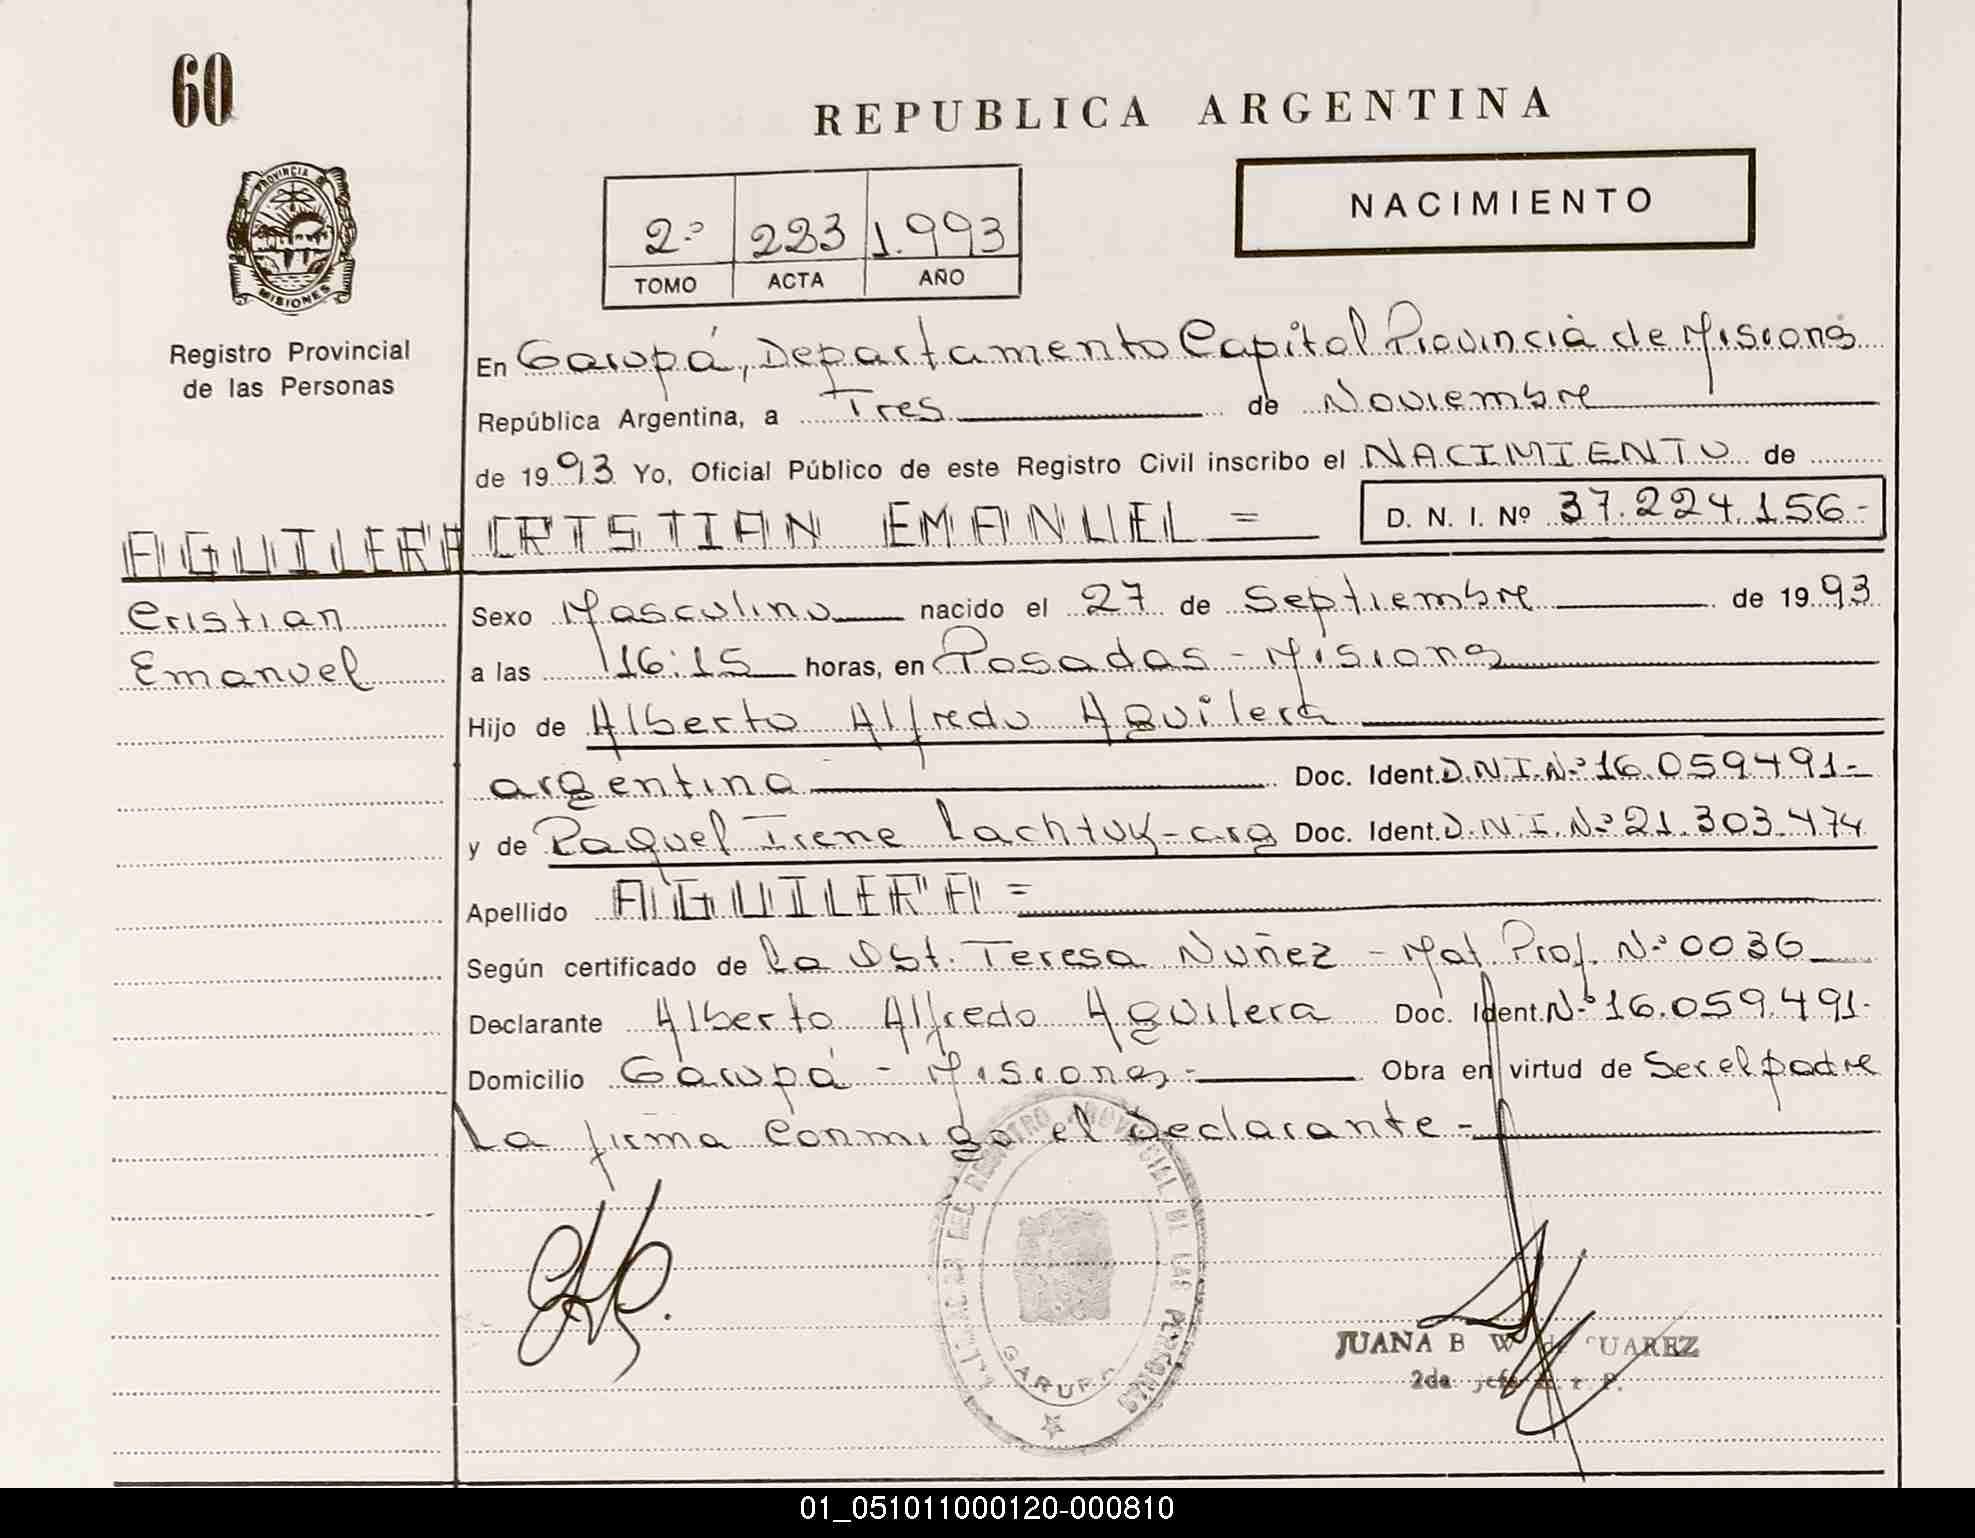 60
REPUBLICA ARGENTINA
NACIMIENTO
2º 223 1.993
TOMO ACTA AÑO
PROVINCIA DE MISIONES
Registro Provincial
de las Personas
En Garupá, Departamento Capital Provincia de Misiones
República Argentina, a Tres de Noviembre
de 1993 Yo, Oficial Público de este Registro Civil inscribo el NACIMIENTO de
AGUILERA CRISTIAN EMANUEL = D. N. I. Nº 37.224.156-
Cristian
Emanuel
Sexo Masculino nacido el 27 de Septiembre de 1993
a las 16:15 horas, en Posadas - Misiones
Hijo de Alberto Alfredo Aguilera
argentina Doc. Ident. D.N.I.Nº 16.059491-
y de Raquel Irene Lachtuk-arg Doc. Ident. D.N.I.Nº 21.303.474
Apellido AGUILERA =
Según certificado de La Obt. Teresa Nuñez - Mat. Prof. Nº 0036
Declarante Alberto Alfredo Aguilera Doc. Ident. Nº 16.059.491-
Domicilio Garupá - Misiones- Obra en virtud de Ser el padre
La firma Conmigo el Declarante-
REGISTRO DE LAS PERSONAS
GARUPA
JUANA B W de SUAREZ
2da
01_051011000120-000810